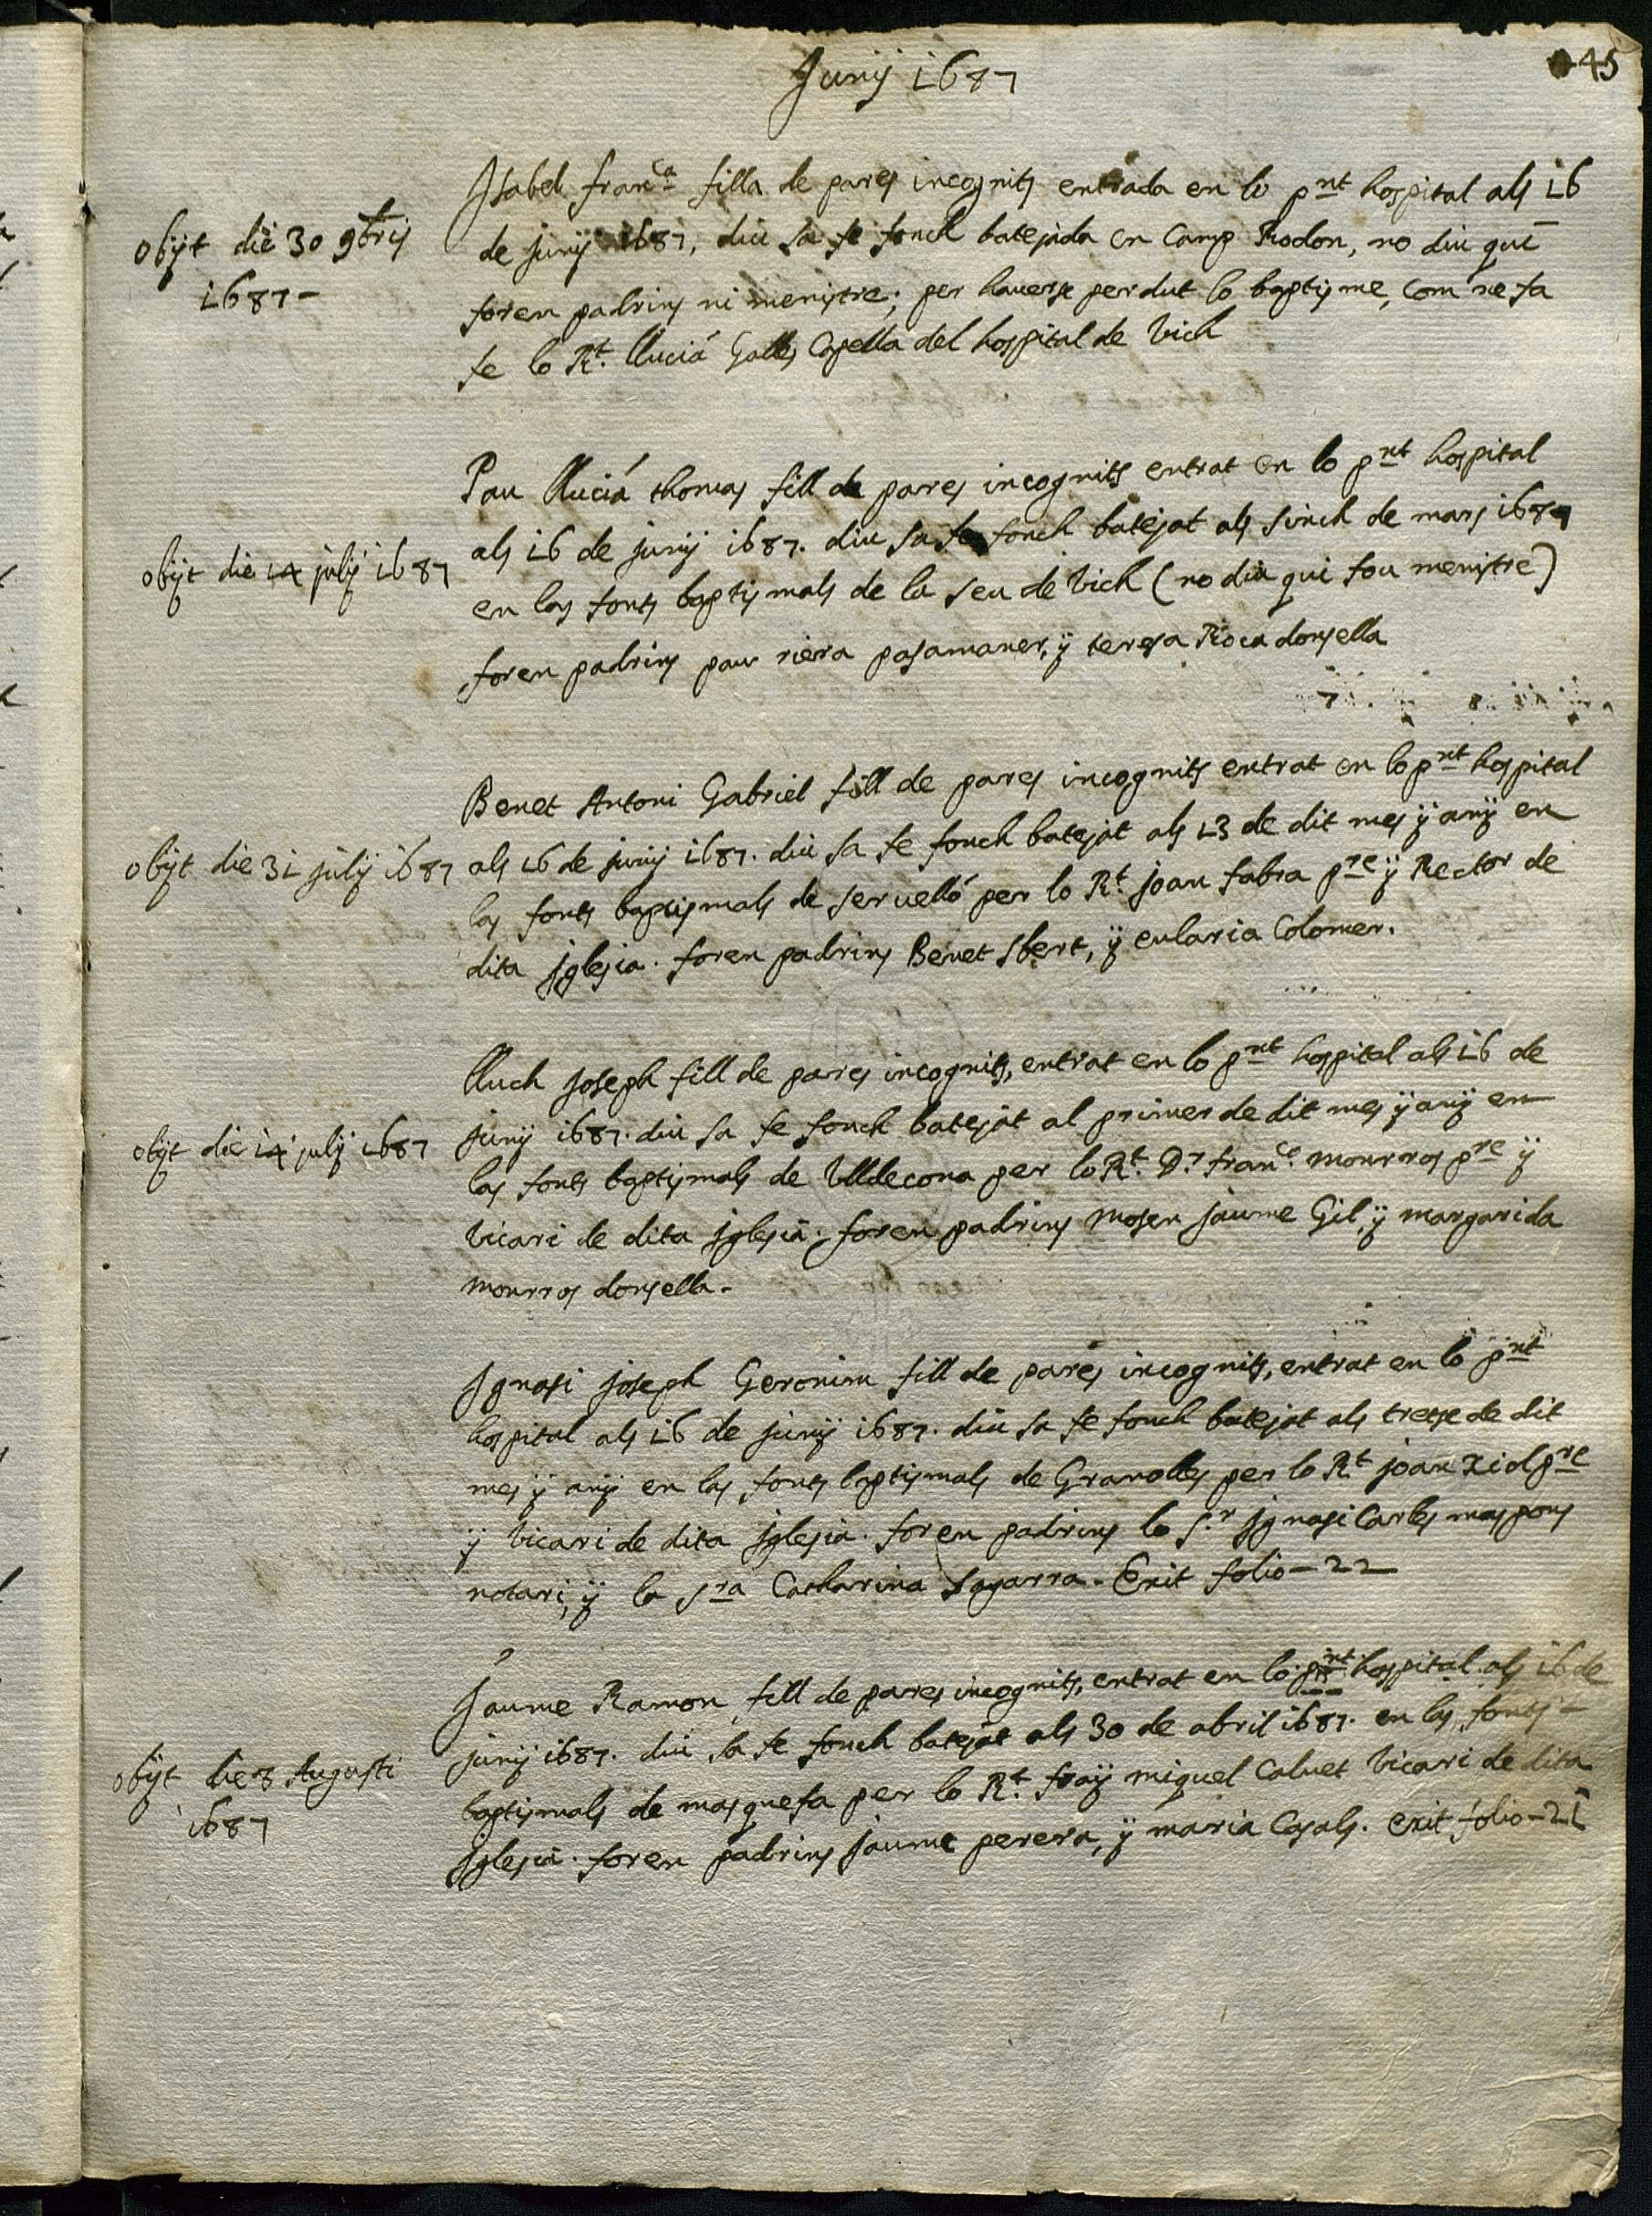 Junÿ 1687
45
Isabel fran<sup>ca</sup> filla de pares incognits entrada en lo p<sup>nt</sup> hospital als 16
de junÿ 1687, diu sa fe fonch batejada en Camp Rodon, no diu qui
foren padrins ni menistre; per haverse perdut lo baptisme, com ne fa
fe lo R<sup>t</sup>. lluciá Galles Capella del hospital de Vich
obÿt die 30 9<sup>bris</sup>
1687-
Pau lluciá thomas fill de pares incognits entrat en lo p<sup>nt</sup> hospital
als 16 de junÿ 1687. diu sa fe fonch batejat als sinch de mars 1687
en las fonts baptismals de la seu de Vich (no diu qui fou menistre)
foren padrins pau riera pasamaner, ÿ teresa Roca donsella
obÿt die 14 julÿ 1687
Benet Antoni Gabriel fill de pares incognits entrat en lo p<sup>nt</sup> hospital
als 16 de junÿ 1687. diu sa fe fonch batejat als 13 de dit mes ÿ anÿ en
las fonts baptismals de servelló per lo R<sup>t</sup>. joan fabra p<sup>re</sup> ÿ Rector de
dita Iglesia. foren padrins Benet Sbert, ÿ eularia Colomer.
obÿt die 31 julÿ 1687
lluch joseph fill de pares incognits, entrat en lo p<sup>nt</sup> hospital als 16 de
junÿ 1687. diu sa fe fonch batejat al primer de dit mes ÿ anÿ en
las fonts baptismals de Ulldecona per lo R<sup>t</sup>. D<sup>r</sup> fran<sup>c</sup>. mourros p<sup>re</sup> ÿ
Vicari de dita Iglesia. foren padrins mosen jaume Gil, ÿ margarida
mourros donsella-
obÿt die 14 julÿ 1687
Ignasi joseph Geronim fill de pares incognits, entrat en lo p<sup>nt</sup>
hospital als 16 de junÿ 1687. diu sa fe fonch batejat als tretse de dit
mes ÿ anÿ en las fonts baptismals de Granolles per lo R<sup>t</sup> joan xiol p<sup>re</sup>
ÿ Vicari de dita Iglesia. foren padrins lo s.<sup>r</sup> Ignasi Carles maspons
notari, ÿ la s<sup>ra</sup> Catharina Sagarra. Exit folio-22
Jaume Ramon fill de pares incognits, entrat en lo p<sup>nt</sup> hospital als 16 de
junÿ 1687. diu sa fe fonch batejat als 30 de abril 1687. en las fonts-
baptismals de masquefa per lo R<sup>t</sup>. fraÿ miquel Calvet Vicari de dita
Iglesia. foren padrins jaume perera, ÿ maria Casals. exit folio-21
obÿt die 8 Augusti
1687